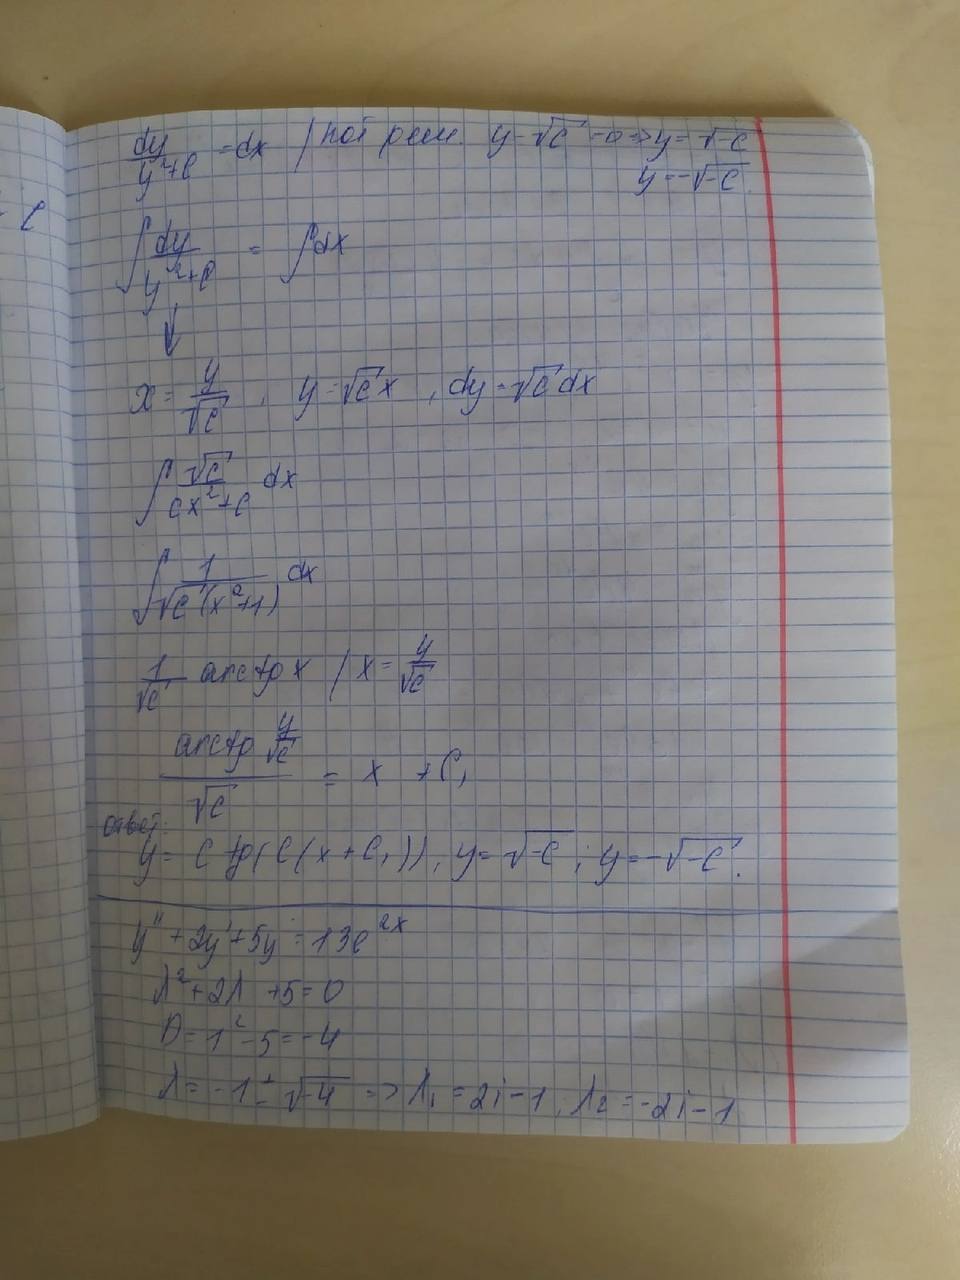 dy/(y²+C) = dx / пот. реш. y-√C=0 => y=√-C
y=-√-C
∫ dy/(y²+C) = ∫dx
↓
x = y/√C, y=√C x, dy=√C dx
∫ √C/(Cx²+C) dx
∫ 1/(√C(x²+1)) dx
1/√C arctg x / x = y/√C
(arctg y/√C)/√C = x + C₁
Ответ:
y = C tg(C(x+C₁)), y=√-C; y=-√-C.
y''+2y'+5y=13e^2x
λ²+2λ+5=0
D=1²-5=-4
λ=-1±√-4 => λ₁=2i-1, λ₂=-2i-1